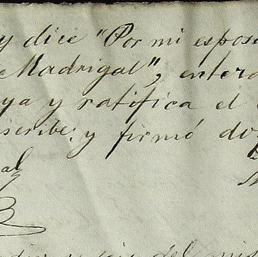 y dice "Por mi esposo
Madrigal", entera
ya y ratifica el
scribe: y firmó do
al